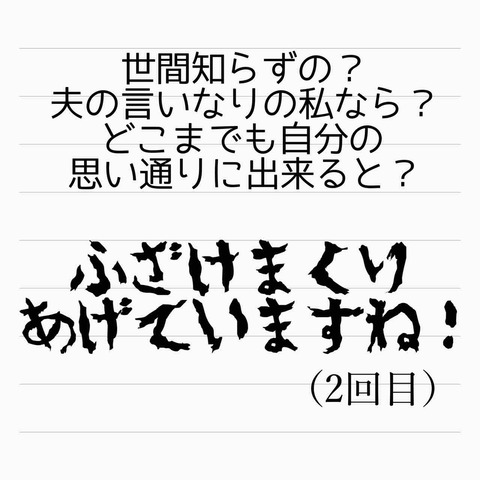 世間知らずの？
夫の言いなりの私なら？
どこまでも自分の
思い通りに出来ると？
ふざけまくり
あげていますね！
（2回目）